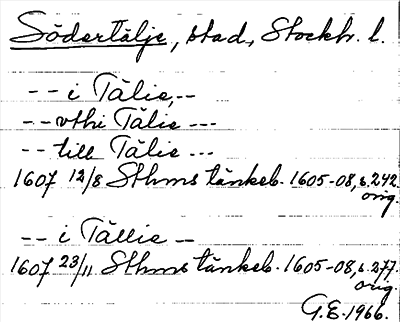 Södertälje, stad, Stockh. l.
-- i Tälie,--
-- vthi Tälie ---
-- till Tälie ---
1607 12/8 Sthms tänkeb. 1605-08, s. 242.
orig.
-- i Tällie --
1607 23/11 Sthms tänkeb. 1605-08, s. 277.
orig.
G.E. 1966.